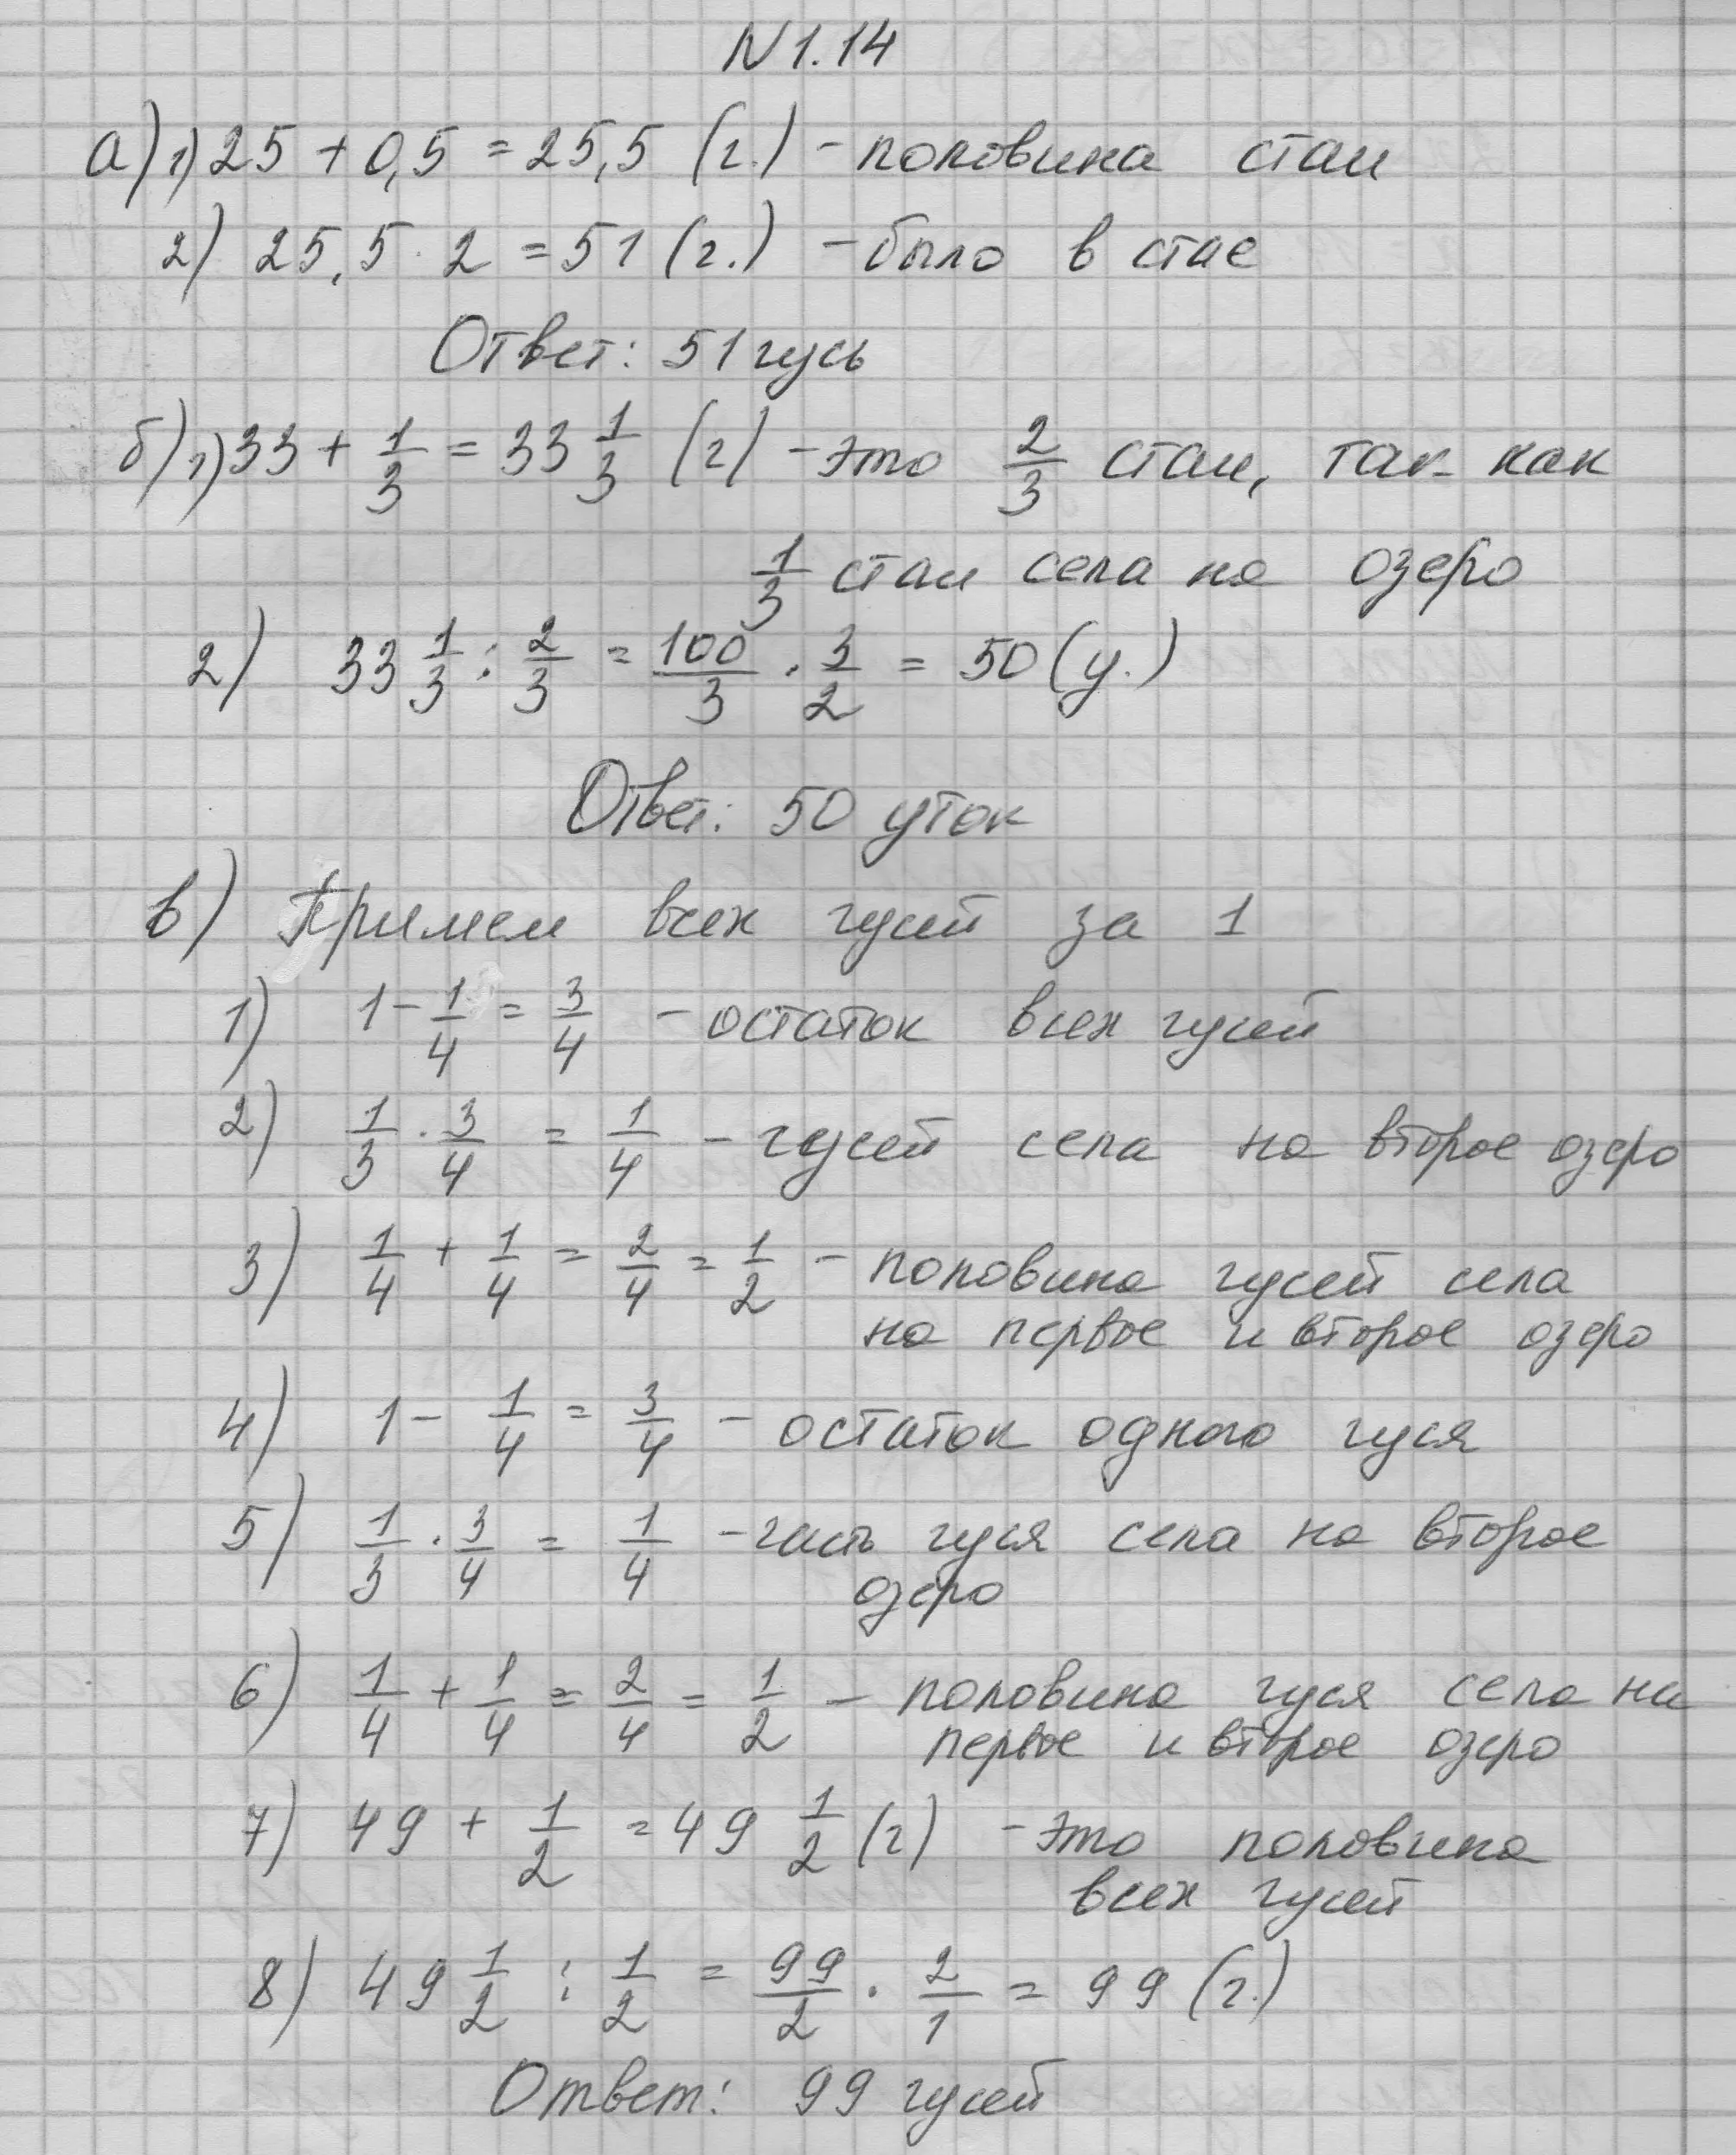 N1.14
а) 1) 25 + 0,5 = 25,5 (г.) - половина стаи
2) 25,5 · 2 = 51 (г.) - было в стае
Ответ: 51 гусь
б) 1) 33 + 1/3 = 33 1/3 (г) - это 2/3 стаи, так как
1/3 стаи села на озеро
2) 33 1/3 : 2/3 = 100/3 · 3/2 = 50 (у.)
Ответ: 50 уток
в) Примем всех гусей за 1
1) 1 - 1/4 = 3/4 - остаток всех гусей
2) 1/3 · 3/4 = 1/4 - гусей села на второе озеро
3) 1/4 + 1/4 = 2/4 = 1/2 - половина гусей села
на первое и второе озеро
4) 1 - 1/4 = 3/4 - остаток одного гуся
5) 1/3 · 3/4 = 1/4 - часть гуся села на второе
озеро
6) 1/4 + 1/4 = 2/4 = 1/2 - половина гуся села на
первое и второе озеро
7) 49 + 1/2 = 49 1/2 (г) - это половина
всех гусей
8) 49 1/2 : 1/2 = 99/2 · 2/1 = 99 (г.)
Ответ: 99 гусей